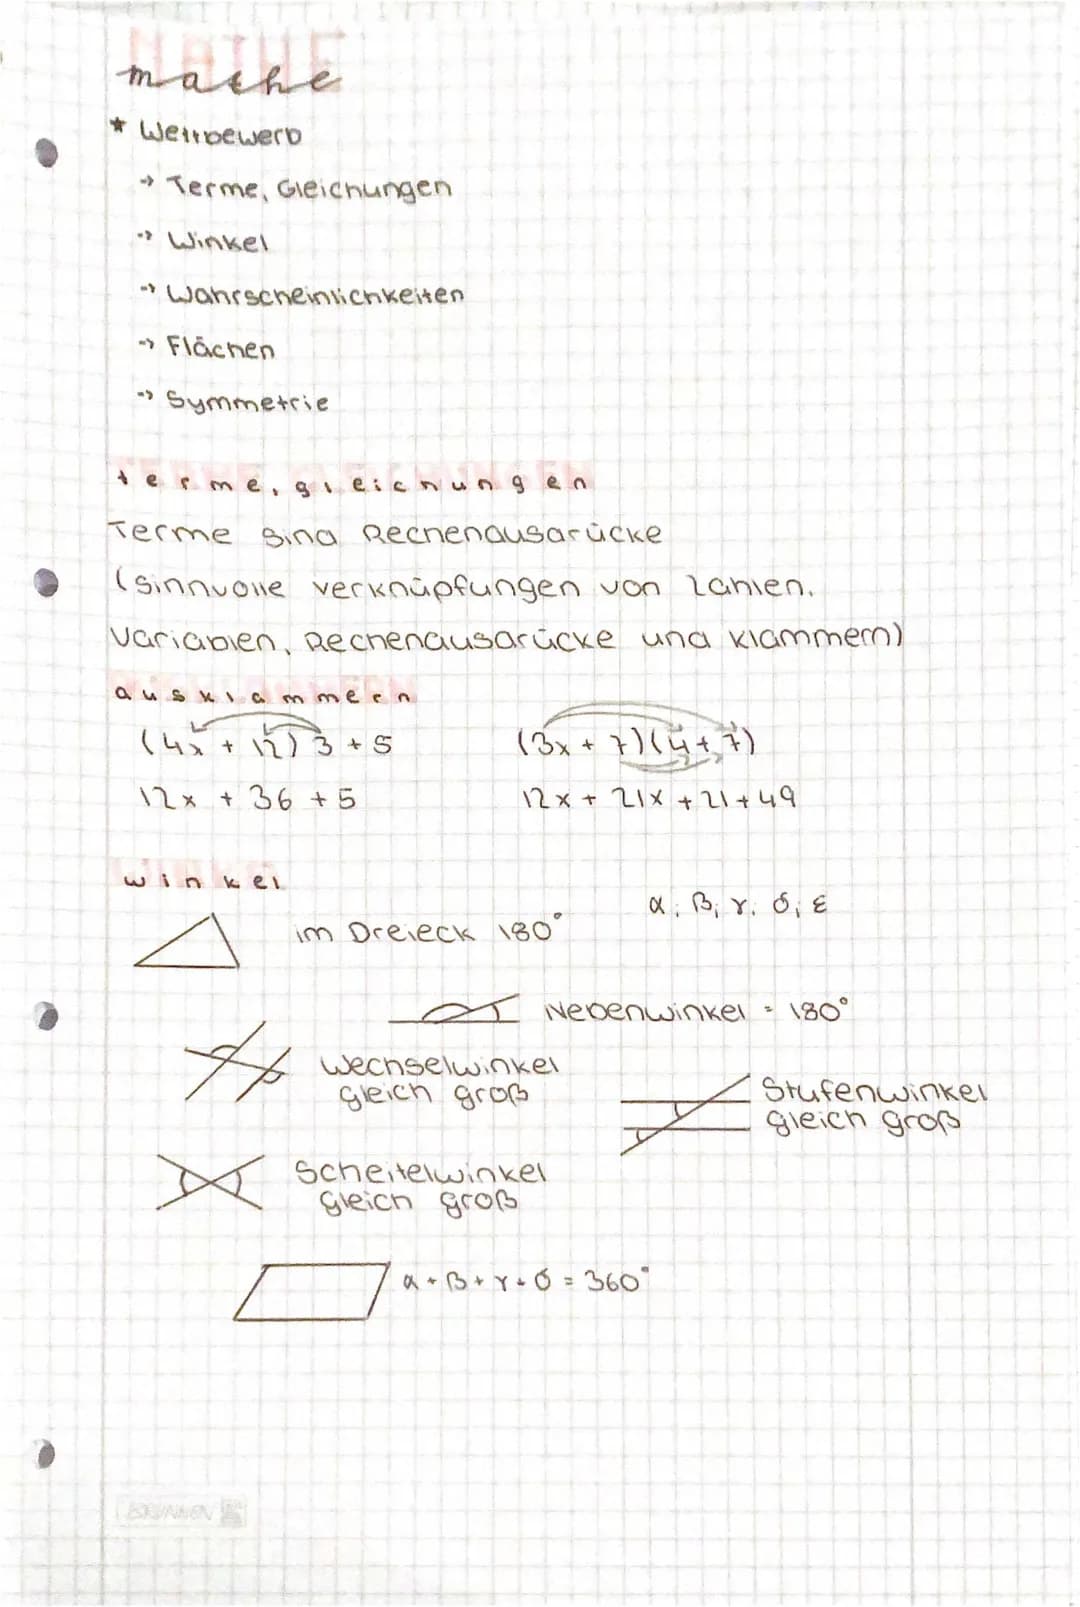 MATHE
mathe
* Wettbewerb
→ Terme, Gleichungen
→ Winkel
→ Wahrscheinlichkeiten
→ Flächen
→ Symmetrie
terme, gleichungen
Terme sind Rechenausdrücke
(sinnvolle verknüpfungen von Zahlen,
Variablen, Rechenausdrücke und Klammern)
ausklammern
(4x + 12) 3 + 5
(3x + 7)(4 + 7)
12x + 36 + 5
12x + 21x + 21 + 49
winkel
α, β, γ, δ, ε
im Dreieck 180°
Nebenwinkel = 180°
Wechselwinkel
gleich groß
Stufenwinkel
gleich groß
Scheitelwinkel
gleich groß
α + β + γ + δ = 360°
BRUNNEN